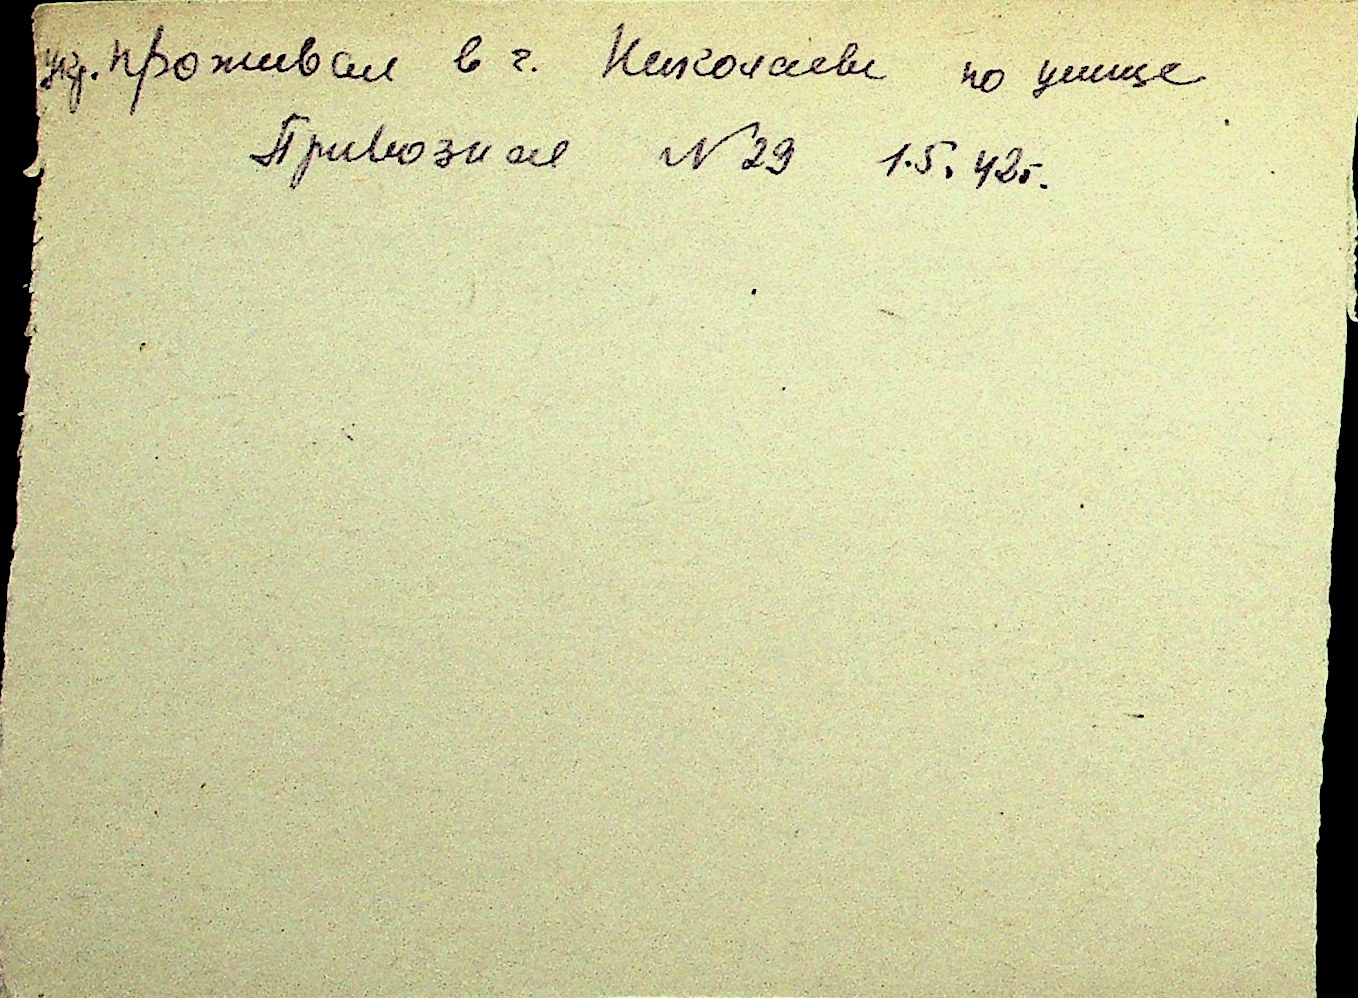 проживал в г. Николаеве по улице
Привозная №29 1.5.42г.